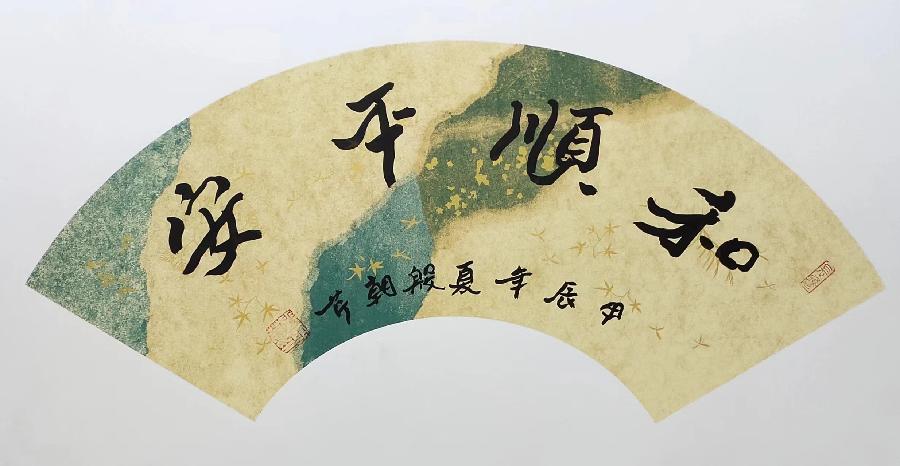 和順平安
甲辰年夏殷朝